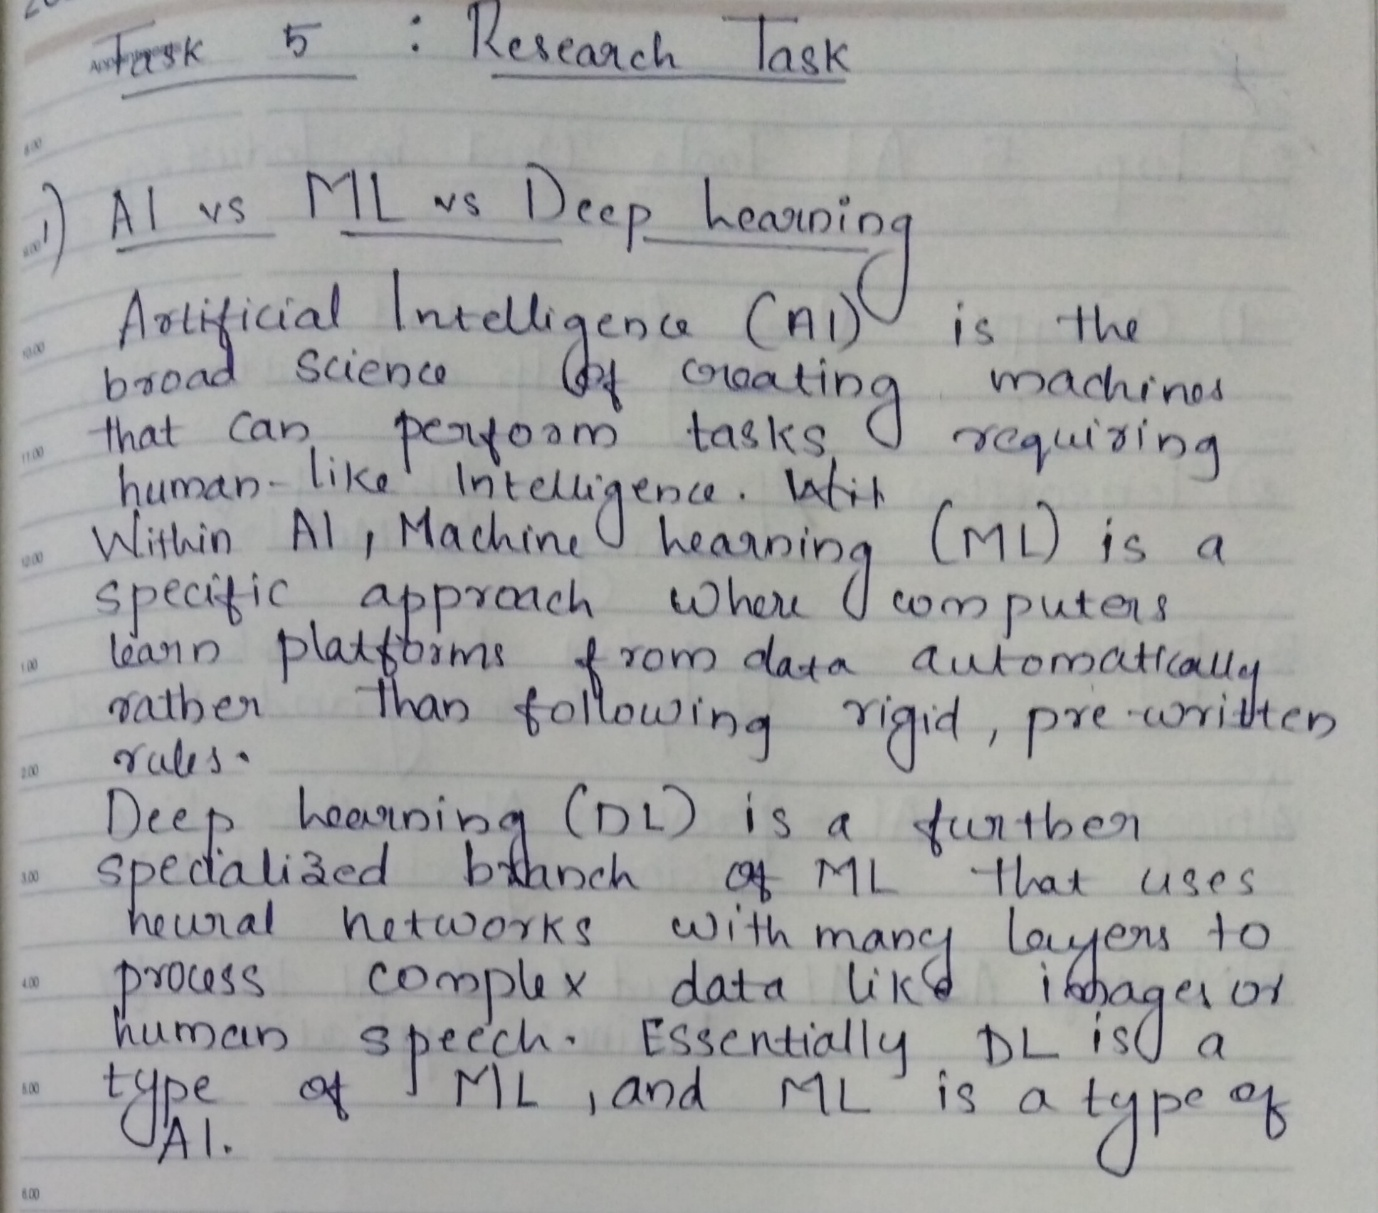 Task 5 : Research Task
1) AI vs ML vs Deep Learning
Artificial Intelligence (AI) is the
broad science of creating machines
that can perform tasks requiring
human-like Intelligence. With
Within AI, Machine Learning (ML) is a
specific approach where computers
learn platforms from data automatically
rather than following rigid, pre-written
rules.
Deep Learning (DL) is a further
specialized branch of ML that uses
neural networks with many layers to
process complex data like images or
human speech. Essentially DL is a
type of ML, and ML is a type of
AI.
8:00
9:00
10:00
11:00
12:00
1:00
2:00
3:00
4:00
5:00
6:00